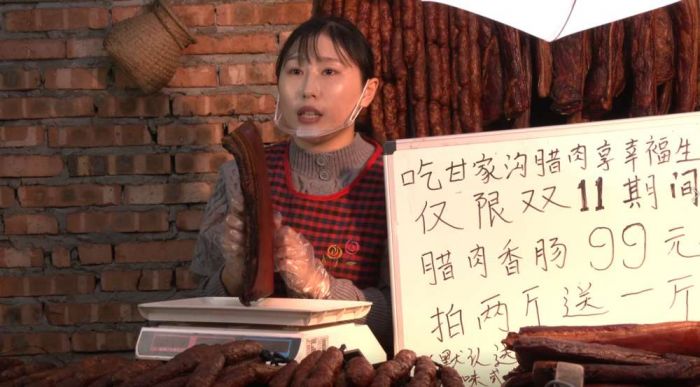 吃甘家沟腊肉享幸福生
仅限双11期间
腊肉香肠99元
拍两斤送一斤
默认送
味